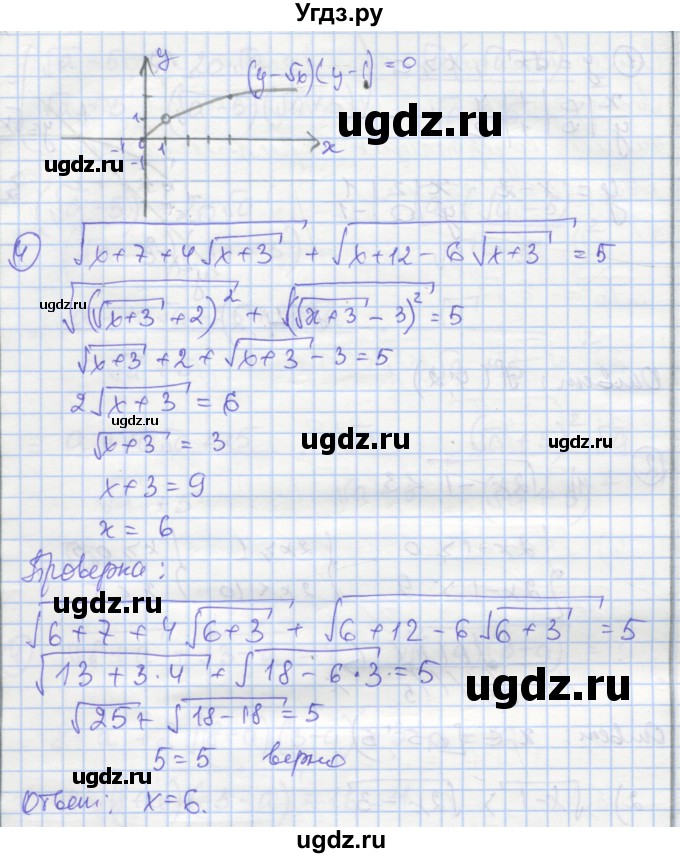 Угдз.ру
y
(y-√x)(y-1)=0
ugdz.ru
1
ugdz.ru
-1 0 1 x
-1
4) √(x+7+4√(x+3)) + √(x+12-6√(x+3)) = 5
ugdz.ru
√((√(x+3)+2)²) + √((√(x+3)-3)²) = 5
√(x+3)+2+√(x+3)-3=5
2√(x+3) = 6
ugdz.ru
√(x+3) = 3
ugdz.ru
ugdz.ru
x+3=9
x = 6
Проверка:
ugdz.ru
√(6+7+4√(6+3)) + √(6+12-6√(6+3)) = 5
√(13+3·4) + √(18-6·3) = 5
ugdz.ru
√25 + √(18-18) = 5
5=5 верно
ugdz.ru
ugdz.ru
Ответ: x=6.
ugdz.ru